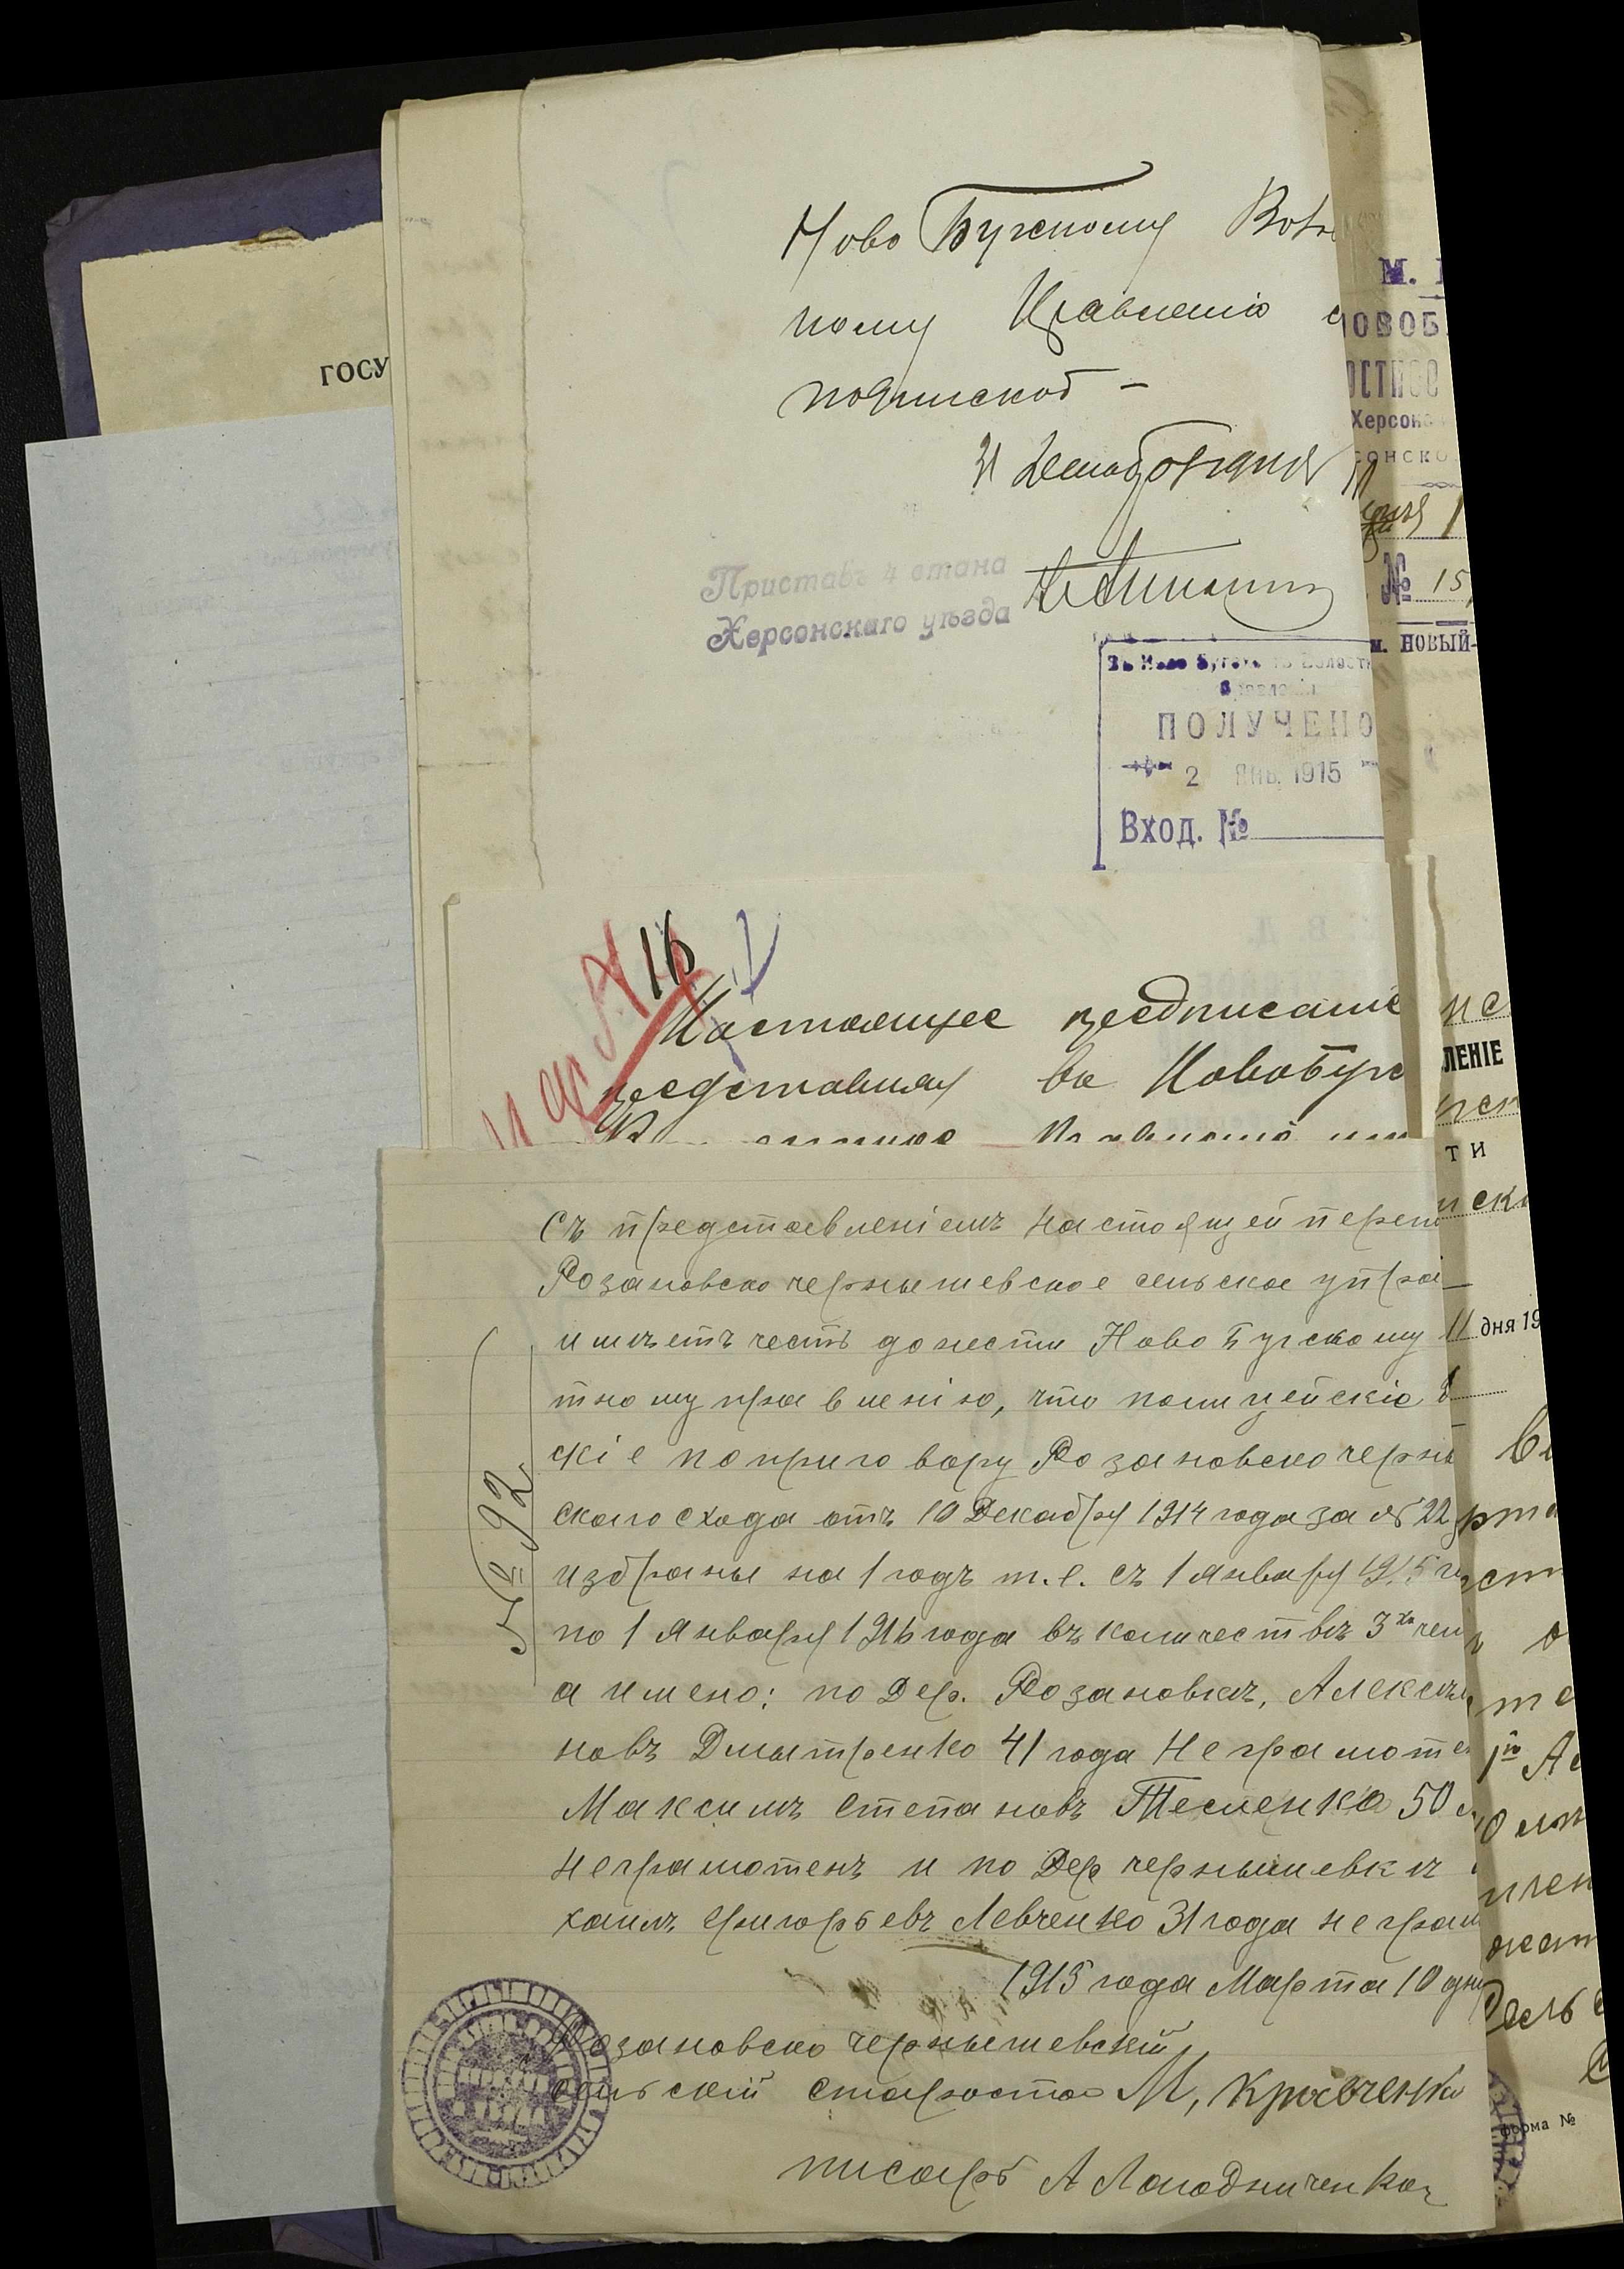 Ново Бугскому
ному Правленію
подпиской –
31 Декабря
Приставъ 4 стана
Херсонскаго уѣзда
ПОЛУЧЕНО
2 ЯНВ. 1915
Вход. №
ГОСУ
№ 15
м. НОВЫЙ-
Херсон
16
Настоящее предписаніе
представляя въ Новобуг
ЛЕНІЕ
съ представленіемъ настоящей переп
Розановско чернышевское сельское упра-
имѣетъ честь донести Ново Бугскому
тному правленію, что полицейскіе
скіе по приговору Розановско черны
ского схода отъ 10 Декабря 1914 года за № 22
избраны на 1 годъ т.е. съ 1 января 1915 г
по 1 Января 1916 года въ количествѣ 3хъ чел
а имено: по Дер. Розановкѣ, Алексѣ
новъ Дмытренко 41 года Неграмоте
Максимъ Степановъ Тесленко 50
неграмотенъ и по Дер чернышевкѣ
хаилъ Григорьевъ Левченко 31 года неграм
1915 года Марта 10 дня
Розановско чернышевскій
сельскій староста М, Кравченко
писарь А
№ 92
дня 19
форма №